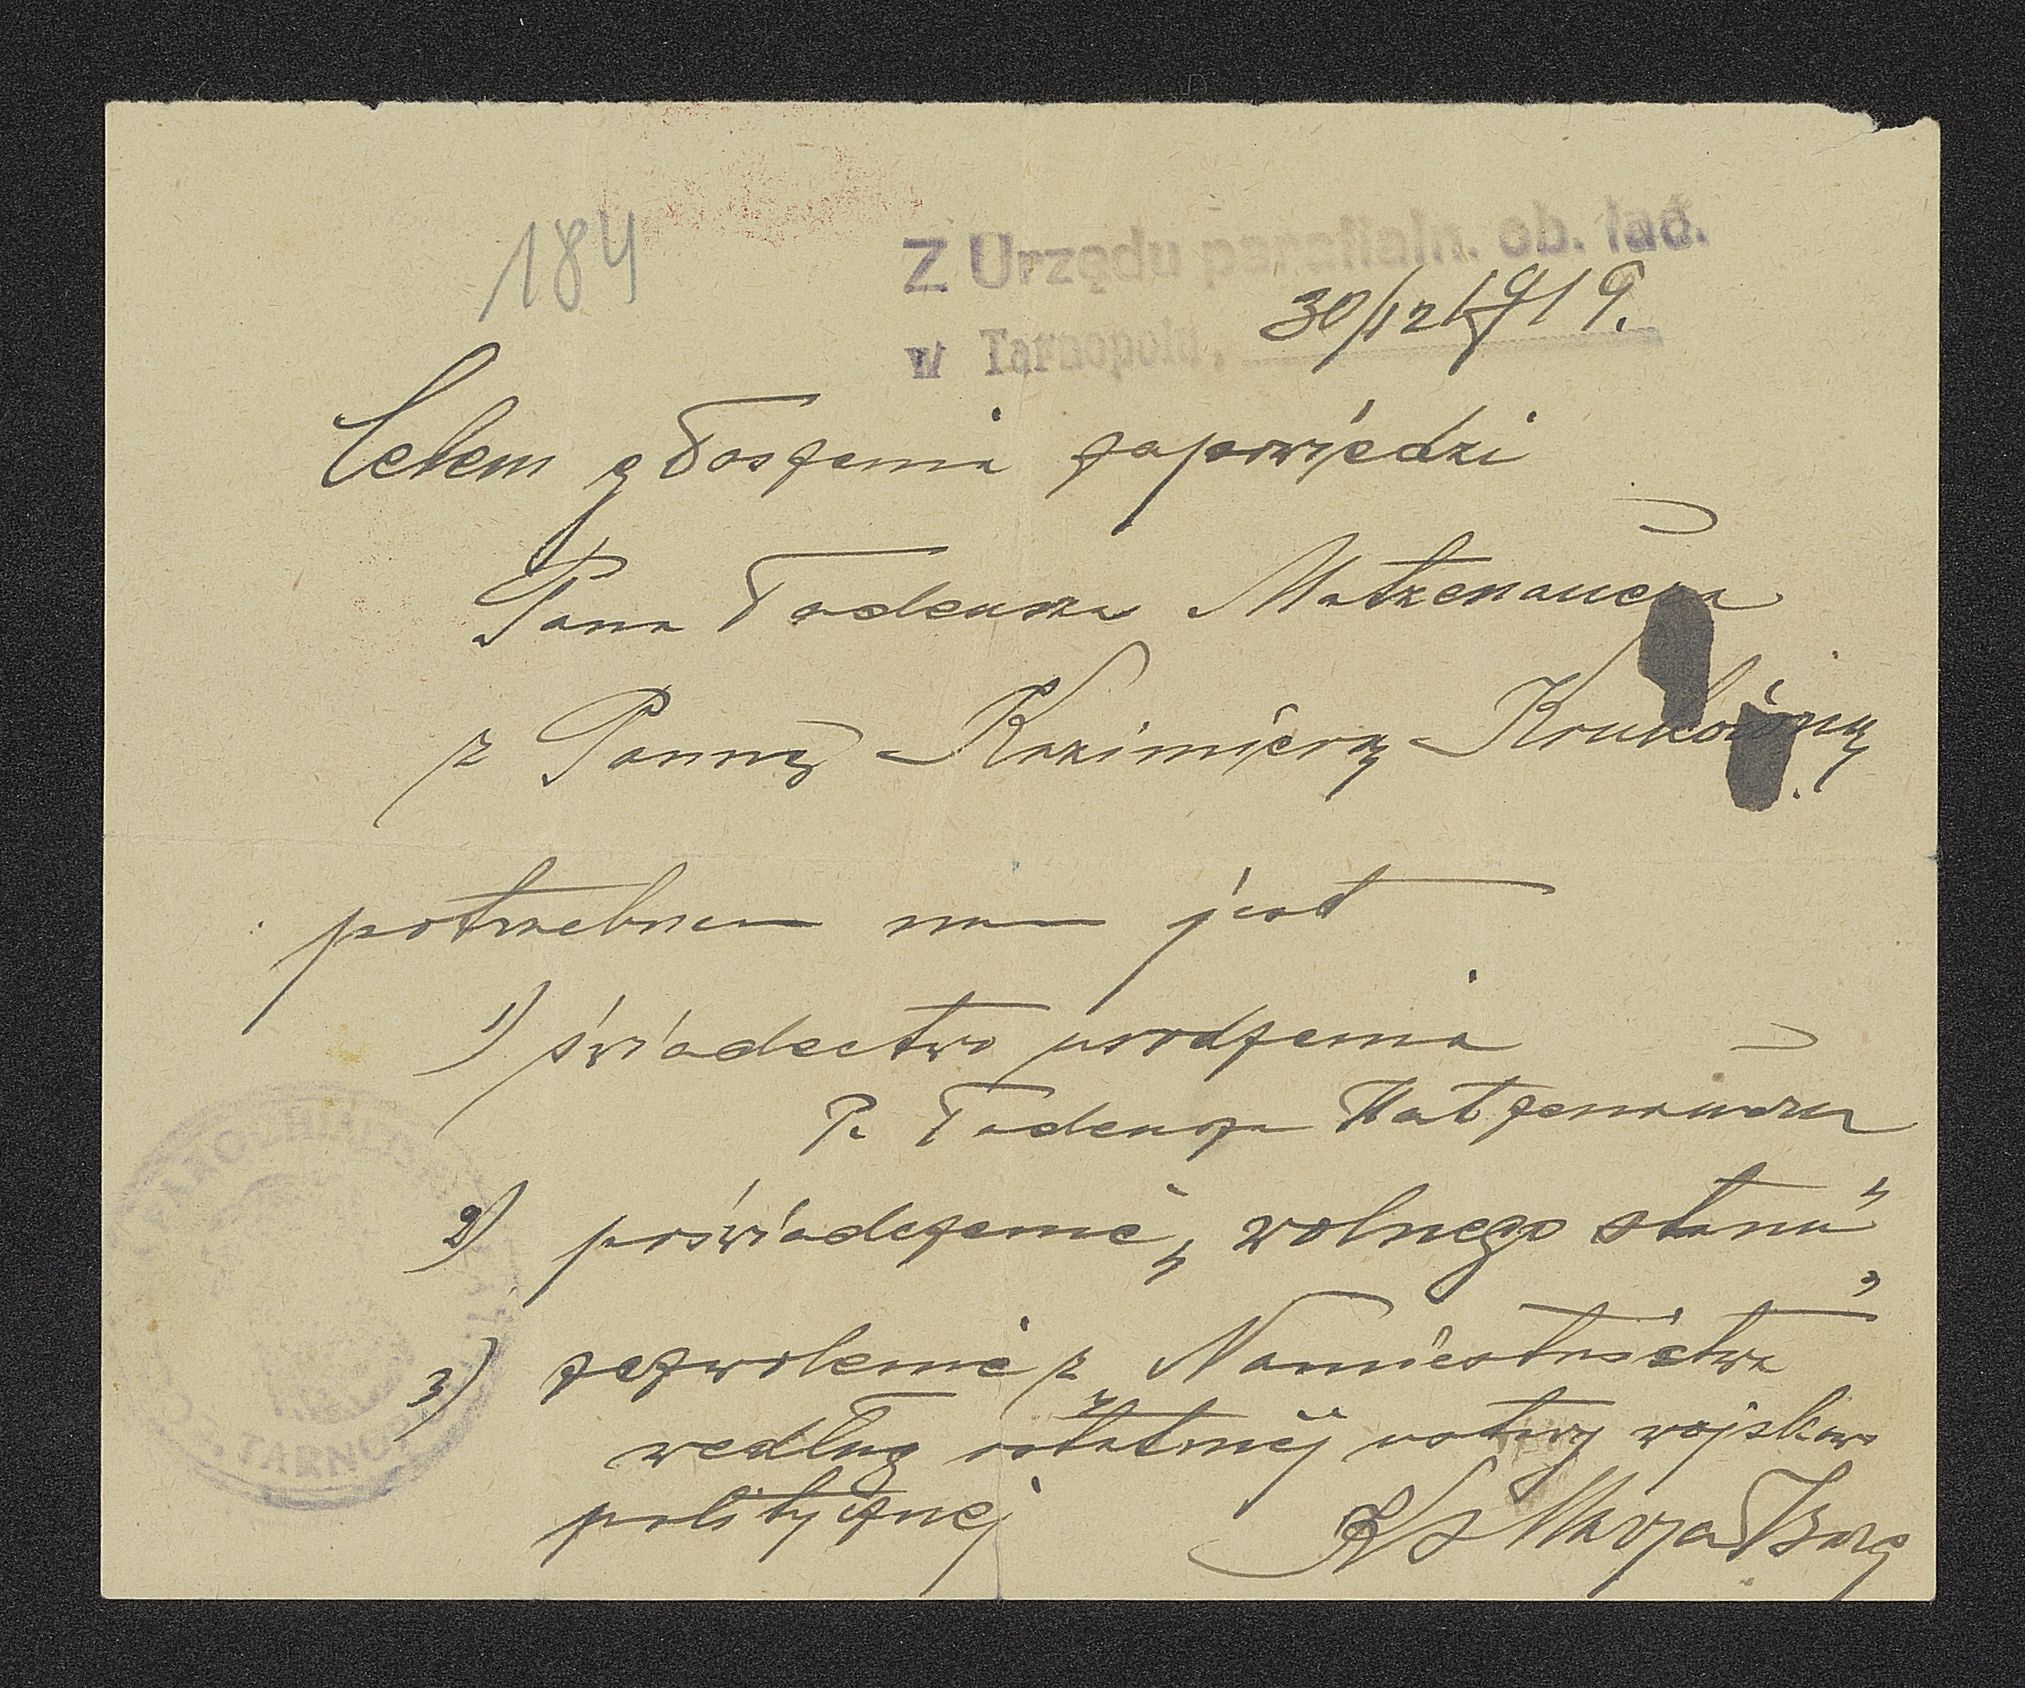 184
Z Urzędu parafialn. ob. łać.
w Tarnopolu, 30/12 1919.
Celem głoszenia zapowiedzi
Pana Tadeusza Matzenauera
z Panną Kazimierą Krukówną.
potrzebnem nam jest
1) świadectwo urodzenia
P. Tadeusza Matzenauera
2) poświadczenie „wolnego stanu"
3) zezwolenie z Namiestnictwa
według ostatniej ustawy wojskowo
politycznej
Ks
TARNOP